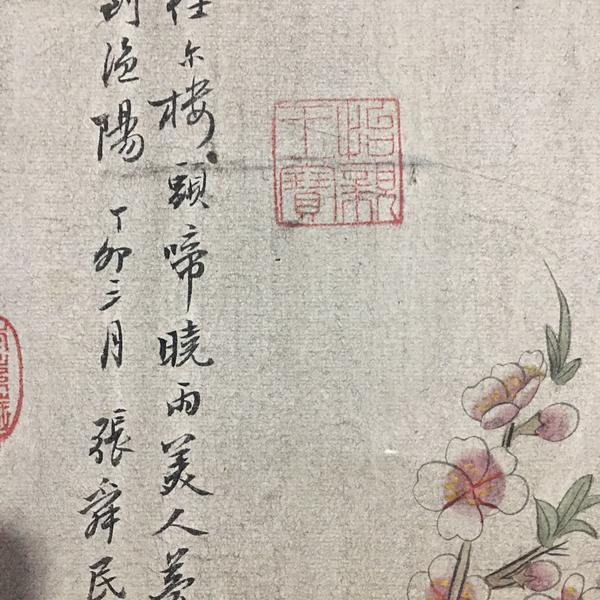 任尔楼頭啼曉雨美人夢
到渔陽 丁卯三月 張舜民
怡親
王寶